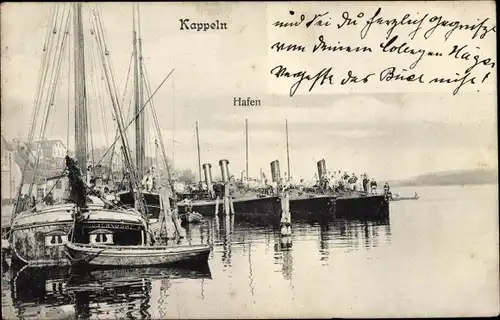 Kappeln
und sei du herzlich gegrüßt
von deinem Collegen Häger
Vergesse das Buch nicht!
Hafen